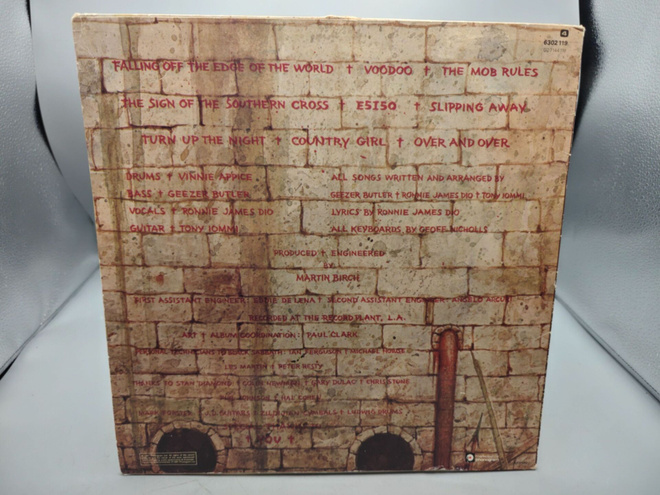 6302 119
FALLING OFF THE EDGE OF THE WORLD † VOODOO † THE MOB RULES
THE SIGN OF THE SOUTHERN CROSS † E5150 † SLIPPING AWAY
TURN UP THE NIGHT † COUNTRY GIRL † OVER AND OVER
DRUMS † VINNIE APPICE
BASS † GEEZER BUTLER
VOCALS † RONNIE JAMES DIO
GUITAR † TONY IOMMI
ALL SONGS WRITTEN AND ARRANGED BY
GEEZER BUTLER † RONNIE JAMES DIO † TONY IOMMI
LYRICS BY RONNIE JAMES DIO
ALL KEYBOARDS BY GEOFF NICHOLLS
PRODUCED † ENGINEERED
BY
MARTIN BIRCH
FIRST ASSISTANT ENGINEER EDDIE DELENA † SECOND ASSISTANT ENGINEER ANGELO ARCURI
RECORDED AT THE RECORD PLANT, L.A.
ART † ALBUM COORDINATION PAUL CLARK
PERSONAL TECHNICIANS TO BLACK SABBATH IAN FERGUSON † MICHAEL
LES MARTIN † PETER RESTY
THANKS TO STAN † GABY DULAC † CHRIS
GUITARS † CYMBALS † LUDWIG DRUMS
† YOU †